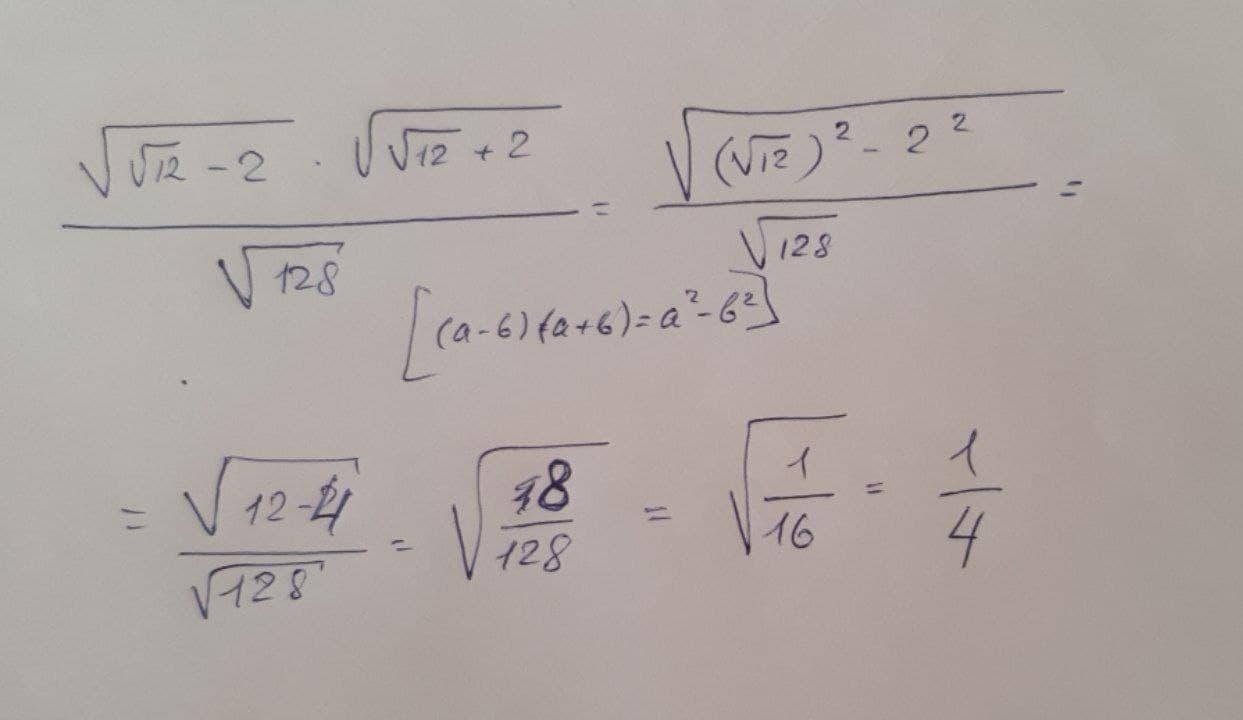 √(√12 - 2) · √(√12 + 2) / √128 = √((√12)² - 2²) / √128 =
[(a-b)(a+b)=a²-b²]
= √(12-4) / √128 = √(8/128) = √(1/16) = 1/4